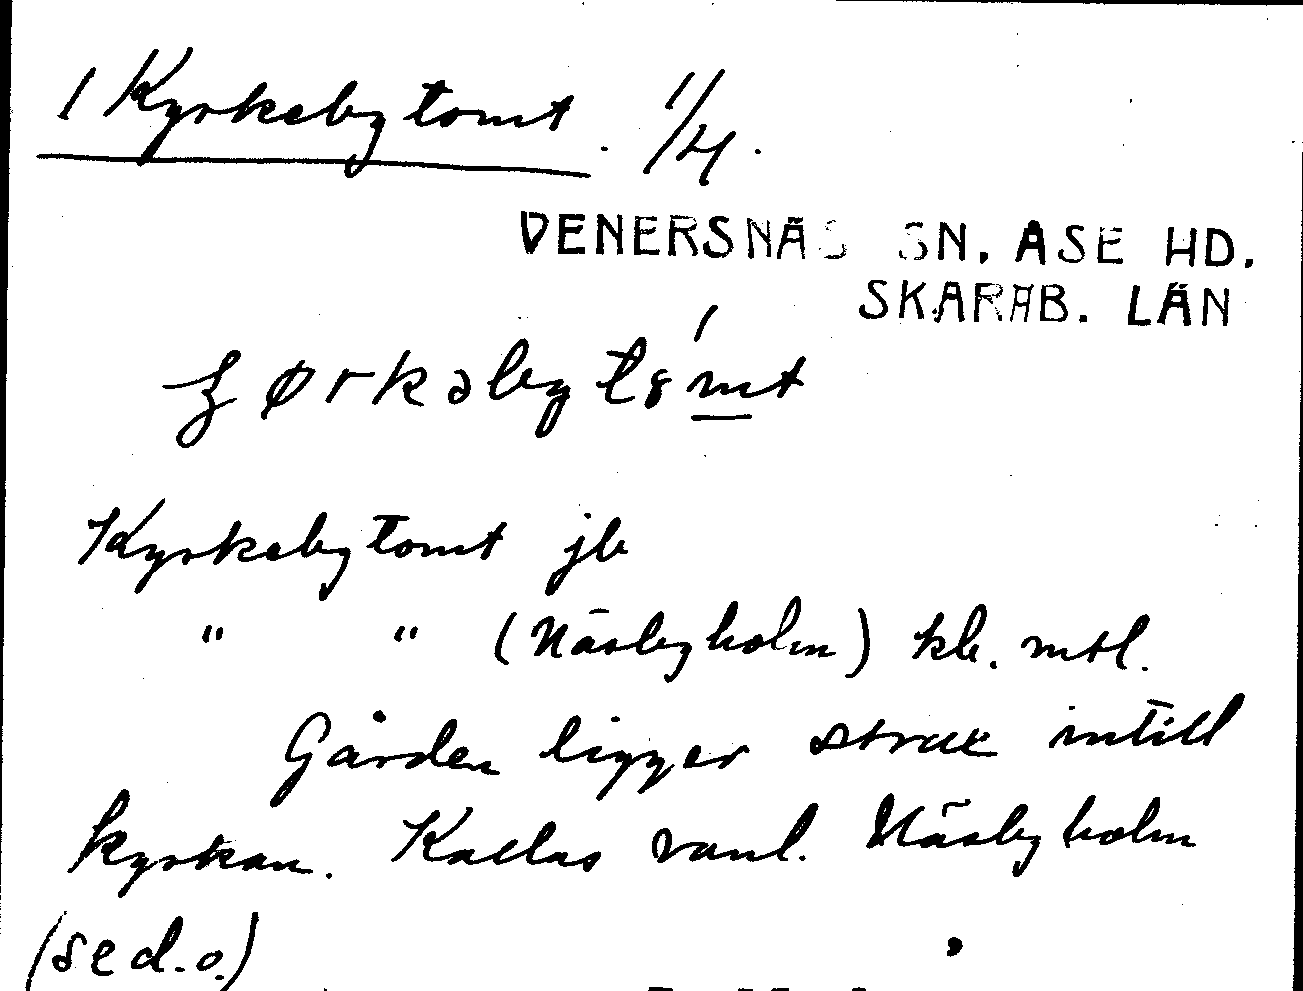 1 Kyrkebytomt. 1/4.
VENERSNÄS SN. ASE HD.
SKARAB. LÄN
Kyrkebytomt jb
" " (Näsbyholm) kb. mtl.
Gården ligger strax intill
kyrkan. Kallas vanl. Näsbyholm
(se d.o.)